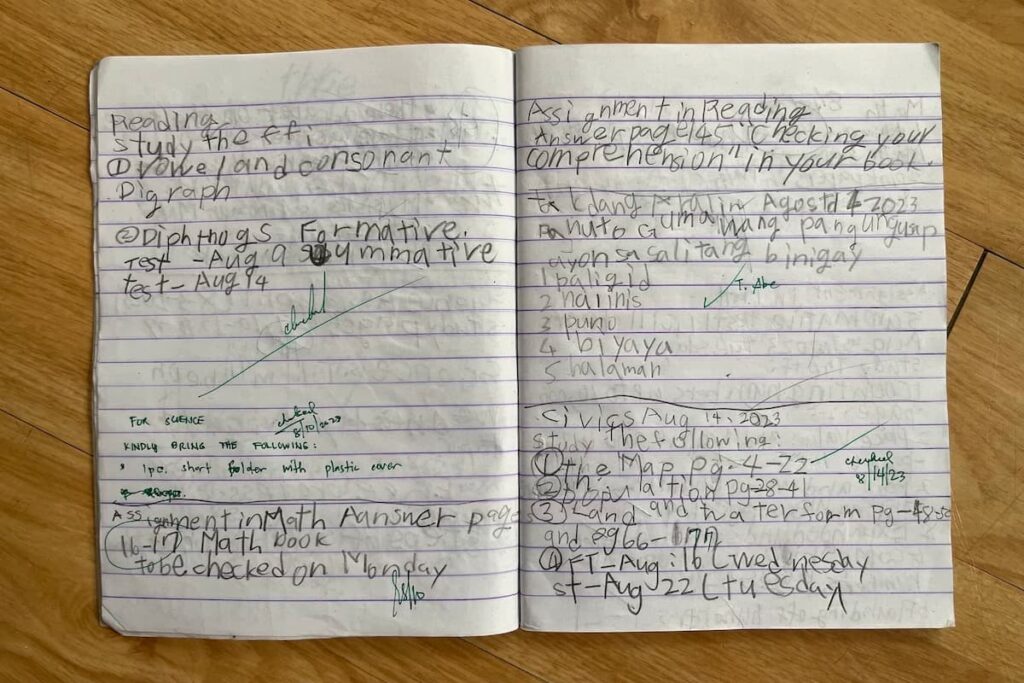 Reading
study the ff:
① vowel and consonant
Digraph
② Diphthogs Formative.
Test - Aug 9 summative
test - Aug 14
checked
FOR SCIENCE
checked
8/10/2023
KINDLY BRING THE FOLLOWING:
* 1pc. short folder with plastic cover
Assignment in Math Aansner page
16-17 Math book
to be checked on Monday
8/10
Assignment in Reading
Answer page 145 "Checking your
comprehension" in your book.
takdang Aralin Agosto 2023
Panuto Gumawang pangungusap
ayon sa salitang binigay
1 paligid
T. Abe
2 malinis
3 puno
4 biyaya
5 halaman
Civics Aug 14, 2023
study the following:
① the Map pg. 4-22
checked
8/14/23
② population pg-28-41
③ Land and water form pg-48-50
and pg 66-
④ FT-Aug:16 (wednesday
st-Aug 22 (tuesday)